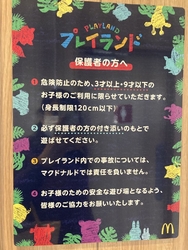 PLAYLAND
プレイランド
保護者の方へ
1 危険防止のため、3才以上・9才以下の
お子様のご利用に限らせていただきます。
(身長制限120cm以下)
2 必ず保護者の方の付き添いのもとで
遊ばせてください。
3 プレイランド内での事故については、
マクドナルドでは責任を負いません。
4 お子様のための安全な遊び場となるよう、
皆様のご協力をお願いいたします。